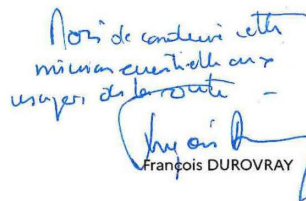 Merci de conduire cette
mission essentielle aux
usagers de la route -
François DUROVRAY